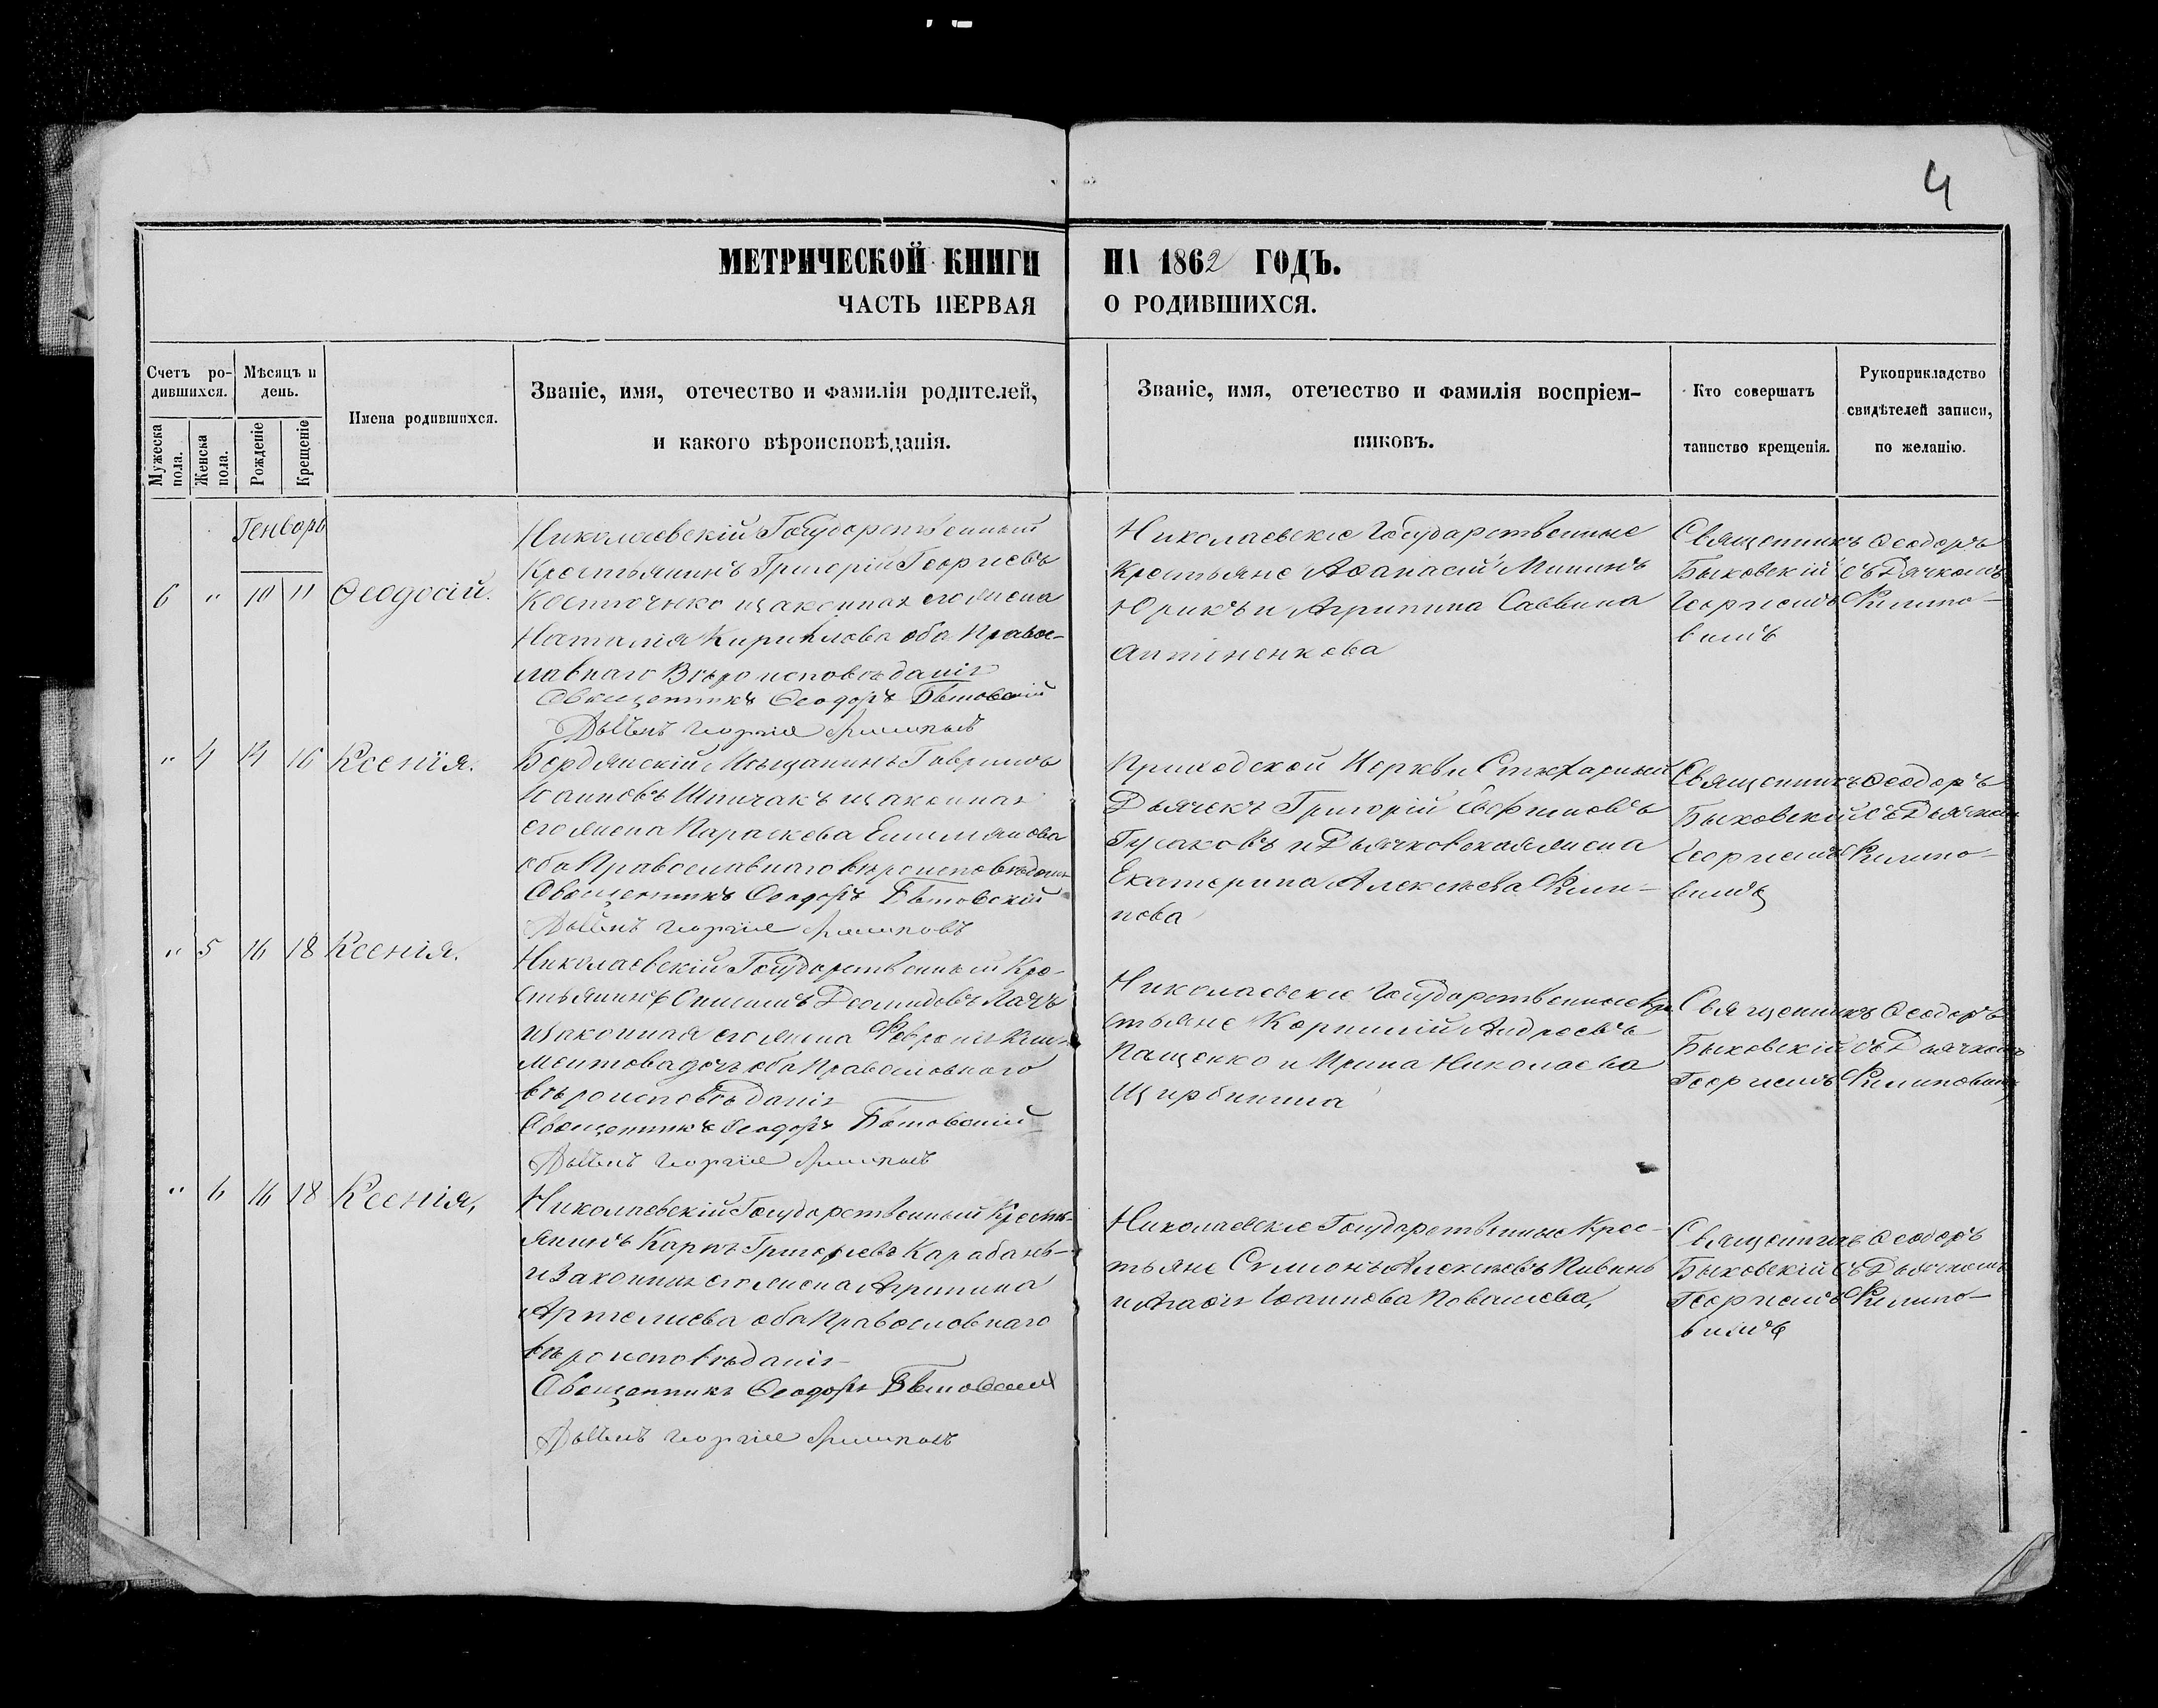 4
МЕТРИЧЕСКОЙ КНИГИ НА 1862 ГОДЪ.
ЧАСТЬ ПЕРВАЯ О РОДИВШИХСЯ.
Счетъ ро-
дившихся.
Мужеска пола.
Женска пола.
Мѣсяцъ и
день.
Рожденіе
Крещеніе
Имена родившихся.
Званіе, имя, отечество и фамилія родителей,
и какого вѣроисповѣданія.
Званіе, имя, отечество и фамилія воспріем-
никовъ.
Кто совершатъ
таинство крещенія.
Рукоприкладство
свидѣтелей записи,
по желанію.
Генворь
6 " 10 11 Ѳеодосій.
Николаевскій Государственный
Крестьянинъ Григорій Георгіевъ
Косточько изаконная его жена
Наталія Кирилова оба Правос-
лавнаго Вѣроисповѣданія
Священникъ Ѳеодоръ Быковскій
Николаевскіе Государственные
Крестьяне Аѳанасій Мининъ
Юрикъ и Агрипина Саввина
Антоненкова
Священникъ Ѳеодоръ
Быковскій съ Дячкомъ
Георгіемъ Филипо-
вимъ
" 4 14 16 Ксенія.
Бердянскій Мѣщанинъ Гавриилъ
Іоанновъ Шпичакъ изаконная
его жена Параскева Емилианова
оба Православнаго вѣроисповѣданія
Священникъ Ѳеодоръ Быковскій
Приходской Церкви Стихарный
Дьячекъ Григорій Евфимовъ
Гусаковъ и Дьячковская жена
Екатерина Алексѣева Фили-
пова
Священникъ Ѳеодоръ
Быковскій съ Дьячкомъ
Георгіемъ Филипо-
вимъ
" 5 16 18 Ксенія.
Николаевскій Государственный Кре-
стьянинъ Онисимъ Демидовъ Лачъ
изаконная его жена Февронія Кли-
ментова дочь оба Православнаго
вѣроисповѣданія
Священникъ Ѳеодоръ Быковскій
Николаевскіе Государственные Кре
стьяне Корнилій Андреевъ
Пащенко и Ирина Николаева
Щирбинина
Священникъ Ѳеодоръ
Быковскій съ Дьячкомъ
Георгіемъ Филиповимъ
" 6 16 18 Ксенія,
Николаевскій Государственный Кресть-
янинъ Карпъ Григорьевъ Карабань-
и Законная его жена Агрипина
Артемиева оба Православнаго
вѣроисповѣданія
Священникъ Ѳеодоръ Быковскій
Николаевскіе Государственные Крес-
тьяне Симіонъ Алексѣевъ Пивень
и Агаѳія Іоаннова Ковалева,
Священникъ Ѳеодоръ
Быковскій съ Дьячкомъ
Георгіемъ Филипо-
вимъ